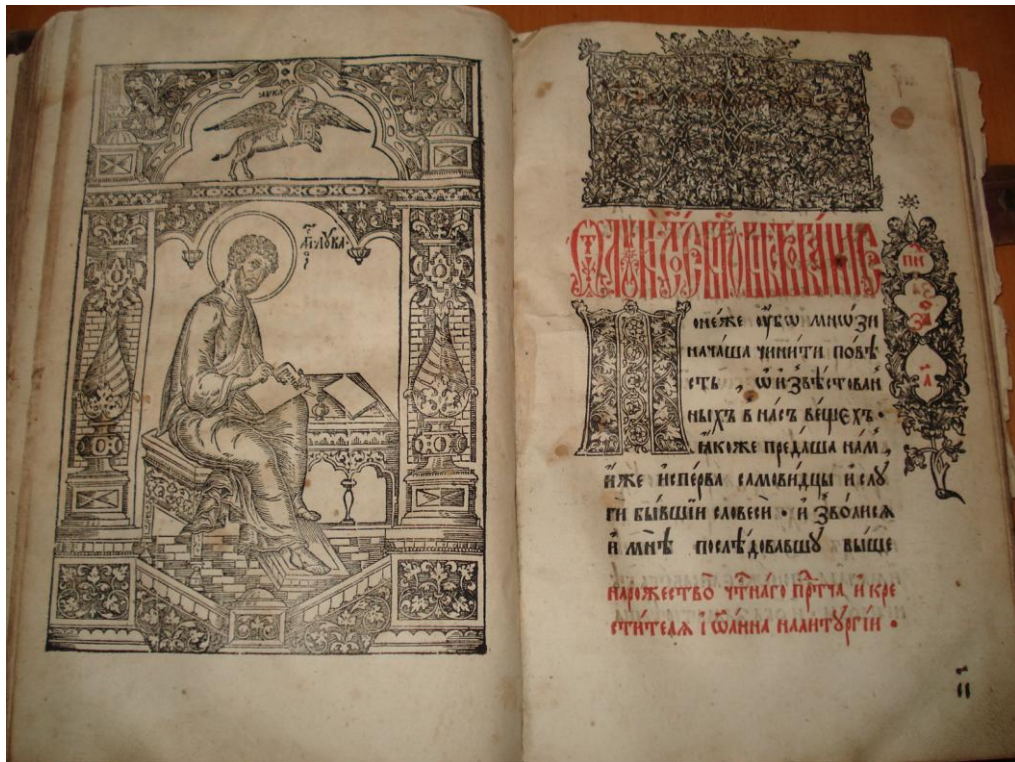 лука
ПОНе́же ᲂу҆́бѡ мнѡ́ѕи
нача́ша чини́ти по́вѣ
сть , ѡ҆ и҆звѣ́стован
ныхъ в на́съ ве́щехъ .
ꙗ҆́коже преда́ша на́м ,
и҆̀же и҆спе́рва самови́дцы и҆ слꙋ
ги̑ бы́вшїи словесѝ . и҆зво́лисѧ
и҆ мнѣ̀ послѣ́довавшꙋ вы́ше
нарожество̀ чтⷭ҇наго прⷣтча , и҆ кре
сти́телѧ і҆ѡ҆а́нна налитꙋргі́и .